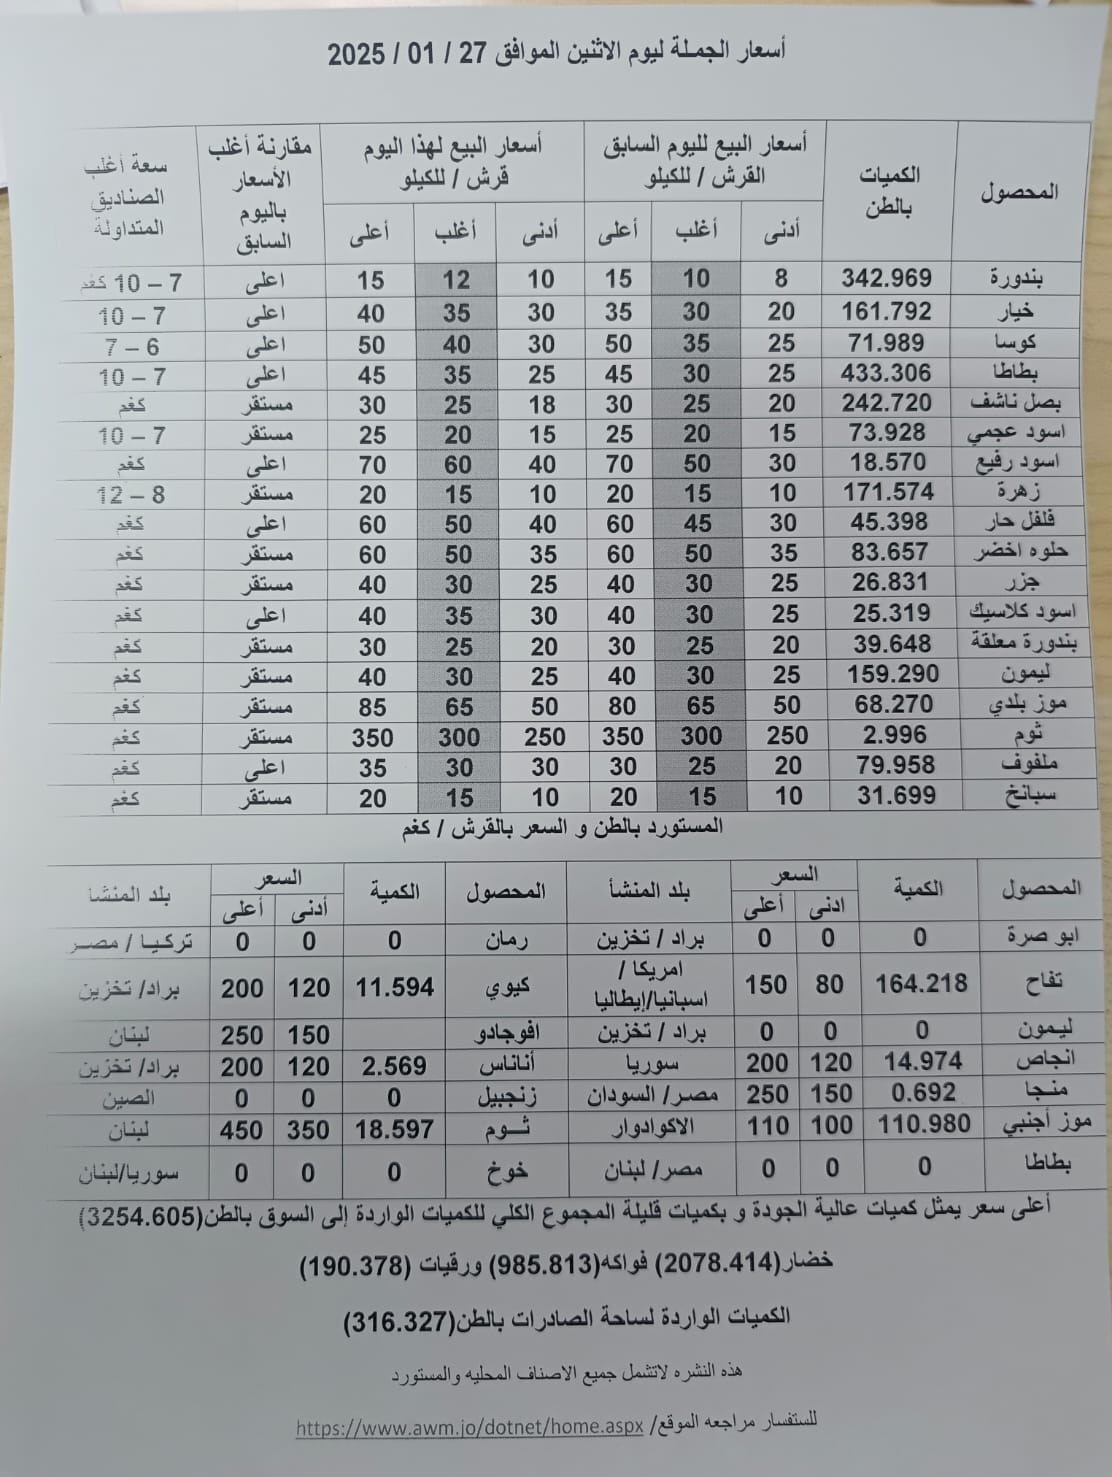 أسعار الجملة ليوم الاثنين الموافق 27 / 01 / 2025
المحصول الكميات بالطن أسعار البيع لليوم السابق القرش / للكيلو أسعار البيع لهذا اليوم قرش / للكيلو مقارنة أغلب الأسعار باليوم السابق سعة أغلب الصناديق المتداولة
أدنى أغلب أعلى أدنى أغلب أعلى
بندورة 342.969 8 10 15 10 12 15 اعلى 7 – 10 كغم
خيار 161.792 20 30 35 30 35 40 اعلى 7 – 10
كوسا 71.989 25 35 50 30 40 50 اعلى 6 – 7
بطاطا 433.306 25 30 45 25 35 45 اعلى 7 – 10
بصل ناشف 242.720 20 25 30 18 25 30 مستقر كغم
اسود عجمي 73.928 15 20 25 15 20 25 مستقر 7 – 10
اسود رفيع 18.570 30 50 70 40 60 70 اعلى كغم
زهرة 171.574 10 15 20 10 15 20 مستقر 8 – 12
فلفل حار 45.398 30 45 60 40 50 60 اعلى كغم
حلوه اخضر 83.657 35 50 60 35 50 60 مستقر كغم
جزر 26.831 25 30 40 25 30 40 مستقر كغم
اسود كلاسيك 25.319 25 30 40 30 35 40 اعلى كغم
بندورة معلقة 39.648 20 25 30 20 25 30 مستقر كغم
ليمون 159.290 25 30 40 25 30 40 مستقر كغم
موز بلدي 68.270 50 65 80 50 65 85 مستقر كغم
ثوم 2.996 250 300 350 250 300 350 مستقر كغم
ملفوف 79.958 20 25 30 30 30 35 اعلى كغم
سبانخ 31.699 10 15 20 10 15 20 مستقر كغم
المستورد بالطن و السعر بالقرش / كغم
المحصول الكمية السعر بلد المنشأ المحصول الكمية السعر بلد المنشأ
ادنى أعلى أدنى أعلى
ابو صرة 0 0 0 براد / تخزين رمان 0 0 0 تركيا / مصر
تفاح 164.218 80 150 امريكا / اسبانيا/إيطاليا كيوي 11.594 120 200 براد/ تخزين
ليمون 0 0 0 براد / تخزين افوجادو 150 250 لبنان
انجاص 14.974 120 200 سوريا أناناس 2.569 120 200 براد/ تخزين
منجا 0.692 150 250 مصر/ السودان زنجبيل 0 0 0 الصين
موز أجنبي 110.980 100 110 الاكوادوار ثوم 18.597 350 450 لبنان
بطاطا 0 0 0 مصر/ لبنان خوخ 0 0 0 سوريا/لبنان
أعلى سعر يمثل كميات عالية الجودة و بكميات قليلة المجموع الكلي للكميات الواردة إلى السوق بالطن(3254.605)
خضار(2078.414) فواكه(985.813) ورقيات (190.378)
الكميات الواردة لساحة الصادرات بالطن(316.327)
هذه النشره لاتشمل جميع الاصناف المحليه والمستورد
للستفسار مراجعه الموقع/ https://www.awm.jo/dotnet/home.aspx